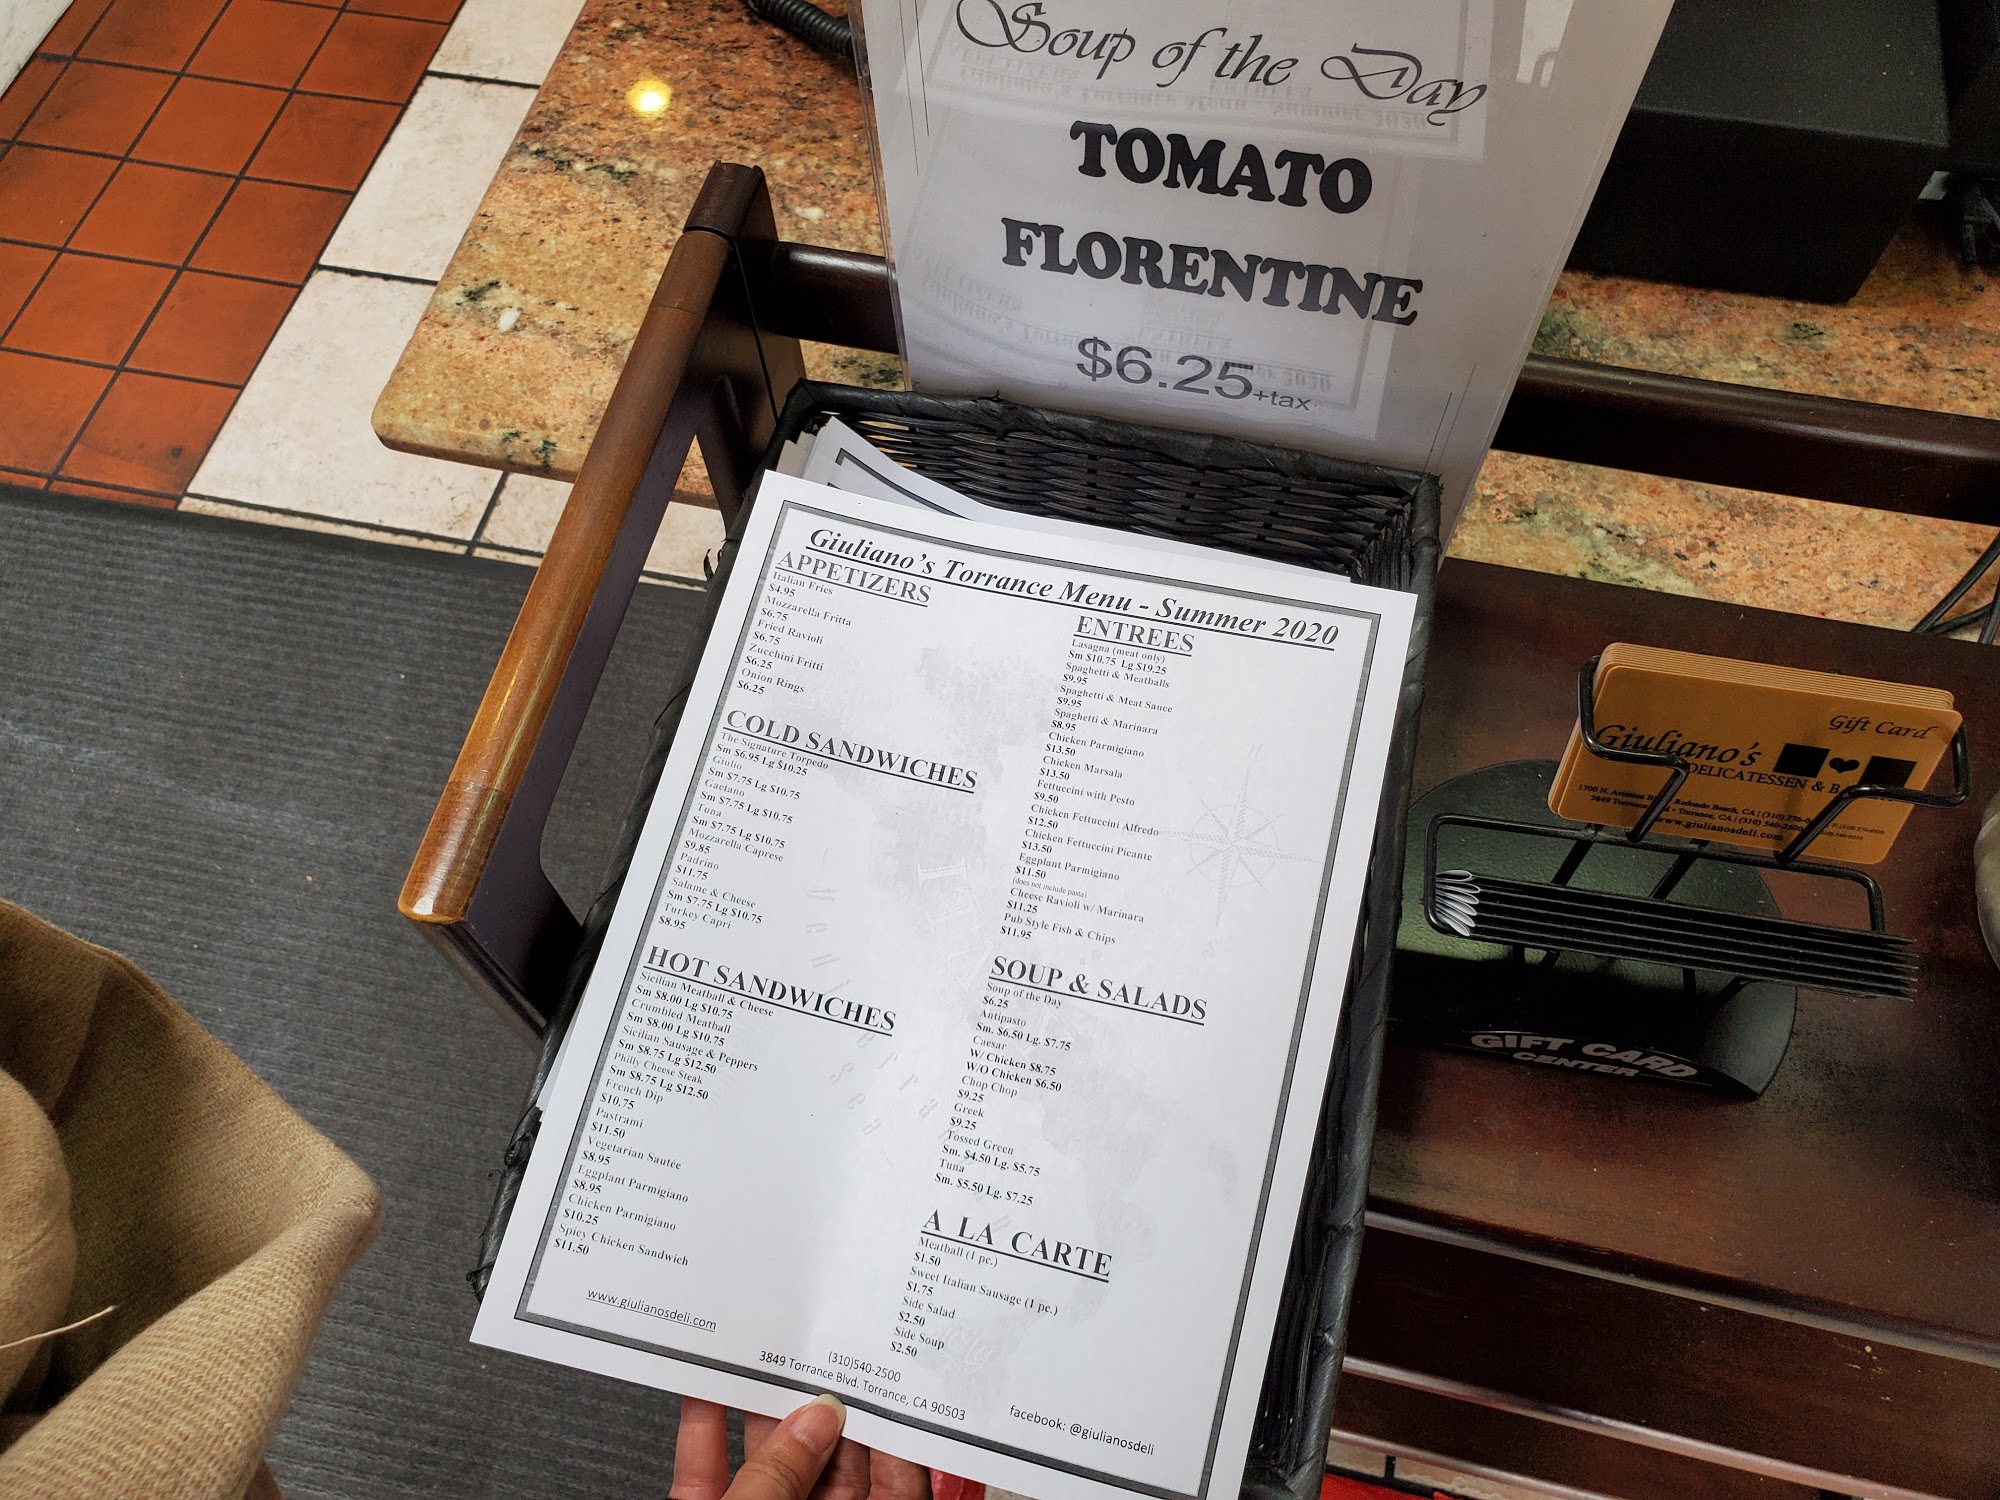 Soup of the Day
TOMATO
FLORENTINE
$6.25+tax
Giuliano's Torrance Menu - Summer 2020
APPETIZERS
Italian Fries
$4.95
Mozzarella Fritta
$6.75
Fried Ravioli
$6.75
Zucchini Fritti
$6.25
Onion Rings
$6.25
COLD SANDWICHES
The Signature Torpedo
Sm $6.95 Lg $10.25
Giulio
Sm $7.75 Lg $10.75
Gaetano
Sm $7.75 Lg $10.75
Tuna
Sm $7.75 Lg $10.75
Mozzarella Caprese
$9.85
Padrino
$11.75
Salame & Cheese
Sm $7.75 Lg $10.75
Turkey Capri
$8.95
HOT SANDWICHES
Sicilian Meatball & Cheese
Sm $8.00 Lg $10.75
Crumbled Meatball
Sm $8.00 Lg $10.75
Sicilian Sausage & Peppers
Sm $8.75 Lg $12.50
Philly Cheese Steak
Sm $8.75 Lg $12.50
French Dip
$10.75
Pastrami
$11.50
Vegetarian Sautée
$8.95
Eggplant Parmigiano
$8.95
Chicken Parmigiano
$10.25
Spicy Chicken Sandwich
$11.50
ENTREES
Lasagna (meat only)
Sm $10.75 Lg $19.25
Spaghetti & Meatballs
$9.95
Spaghetti & Meat Sauce
$9.95
Spaghetti & Marinara
$8.95
Chicken Parmigiano
$13.50
Chicken Marsala
$13.50
Fettuccini with Pesto
$9.50
Chicken Fettuccini Alfredo
$12.50
Chicken Fettuccini Picante
$13.50
Eggplant Parmigiano
$11.50
(does not include pasta)
Cheese Ravioli w/ Marinara
$11.25
Pub Style Fish & Chips
$11.95
SOUP & SALADS
Soup of the Day
$6.25
Antipasto
Sm. $6.50 Lg. $7.75
Caesar
W/ Chicken $8.75
W/O Chicken $6.50
Chop Chop
$9.25
Greek
$9.25
Tossed Green
Sm. $4.50 Lg. $5.75
Tuna
Sm. $5.50 Lg. $7.25
A LA CARTE
Meatball (1 pc.)
$1.50
Sweet Italian Sausage (1 pc.)
$1.75
Side Salad
$2.50
Side Soup
$2.50
www.giulianosdeli.com
(310)540-2500
3849 Torrance Blvd. Torrance, CA 90503
facebook: @giulianosdeli
Gift Card
Giuliano's
DELICATESSEN &
1700 N. Aviation Redondo Beach, CA (310)
3849 Torrance Torrance, CA (310) 540-2500
www.giulianosdeli.com
GIFT CARD
CENTER